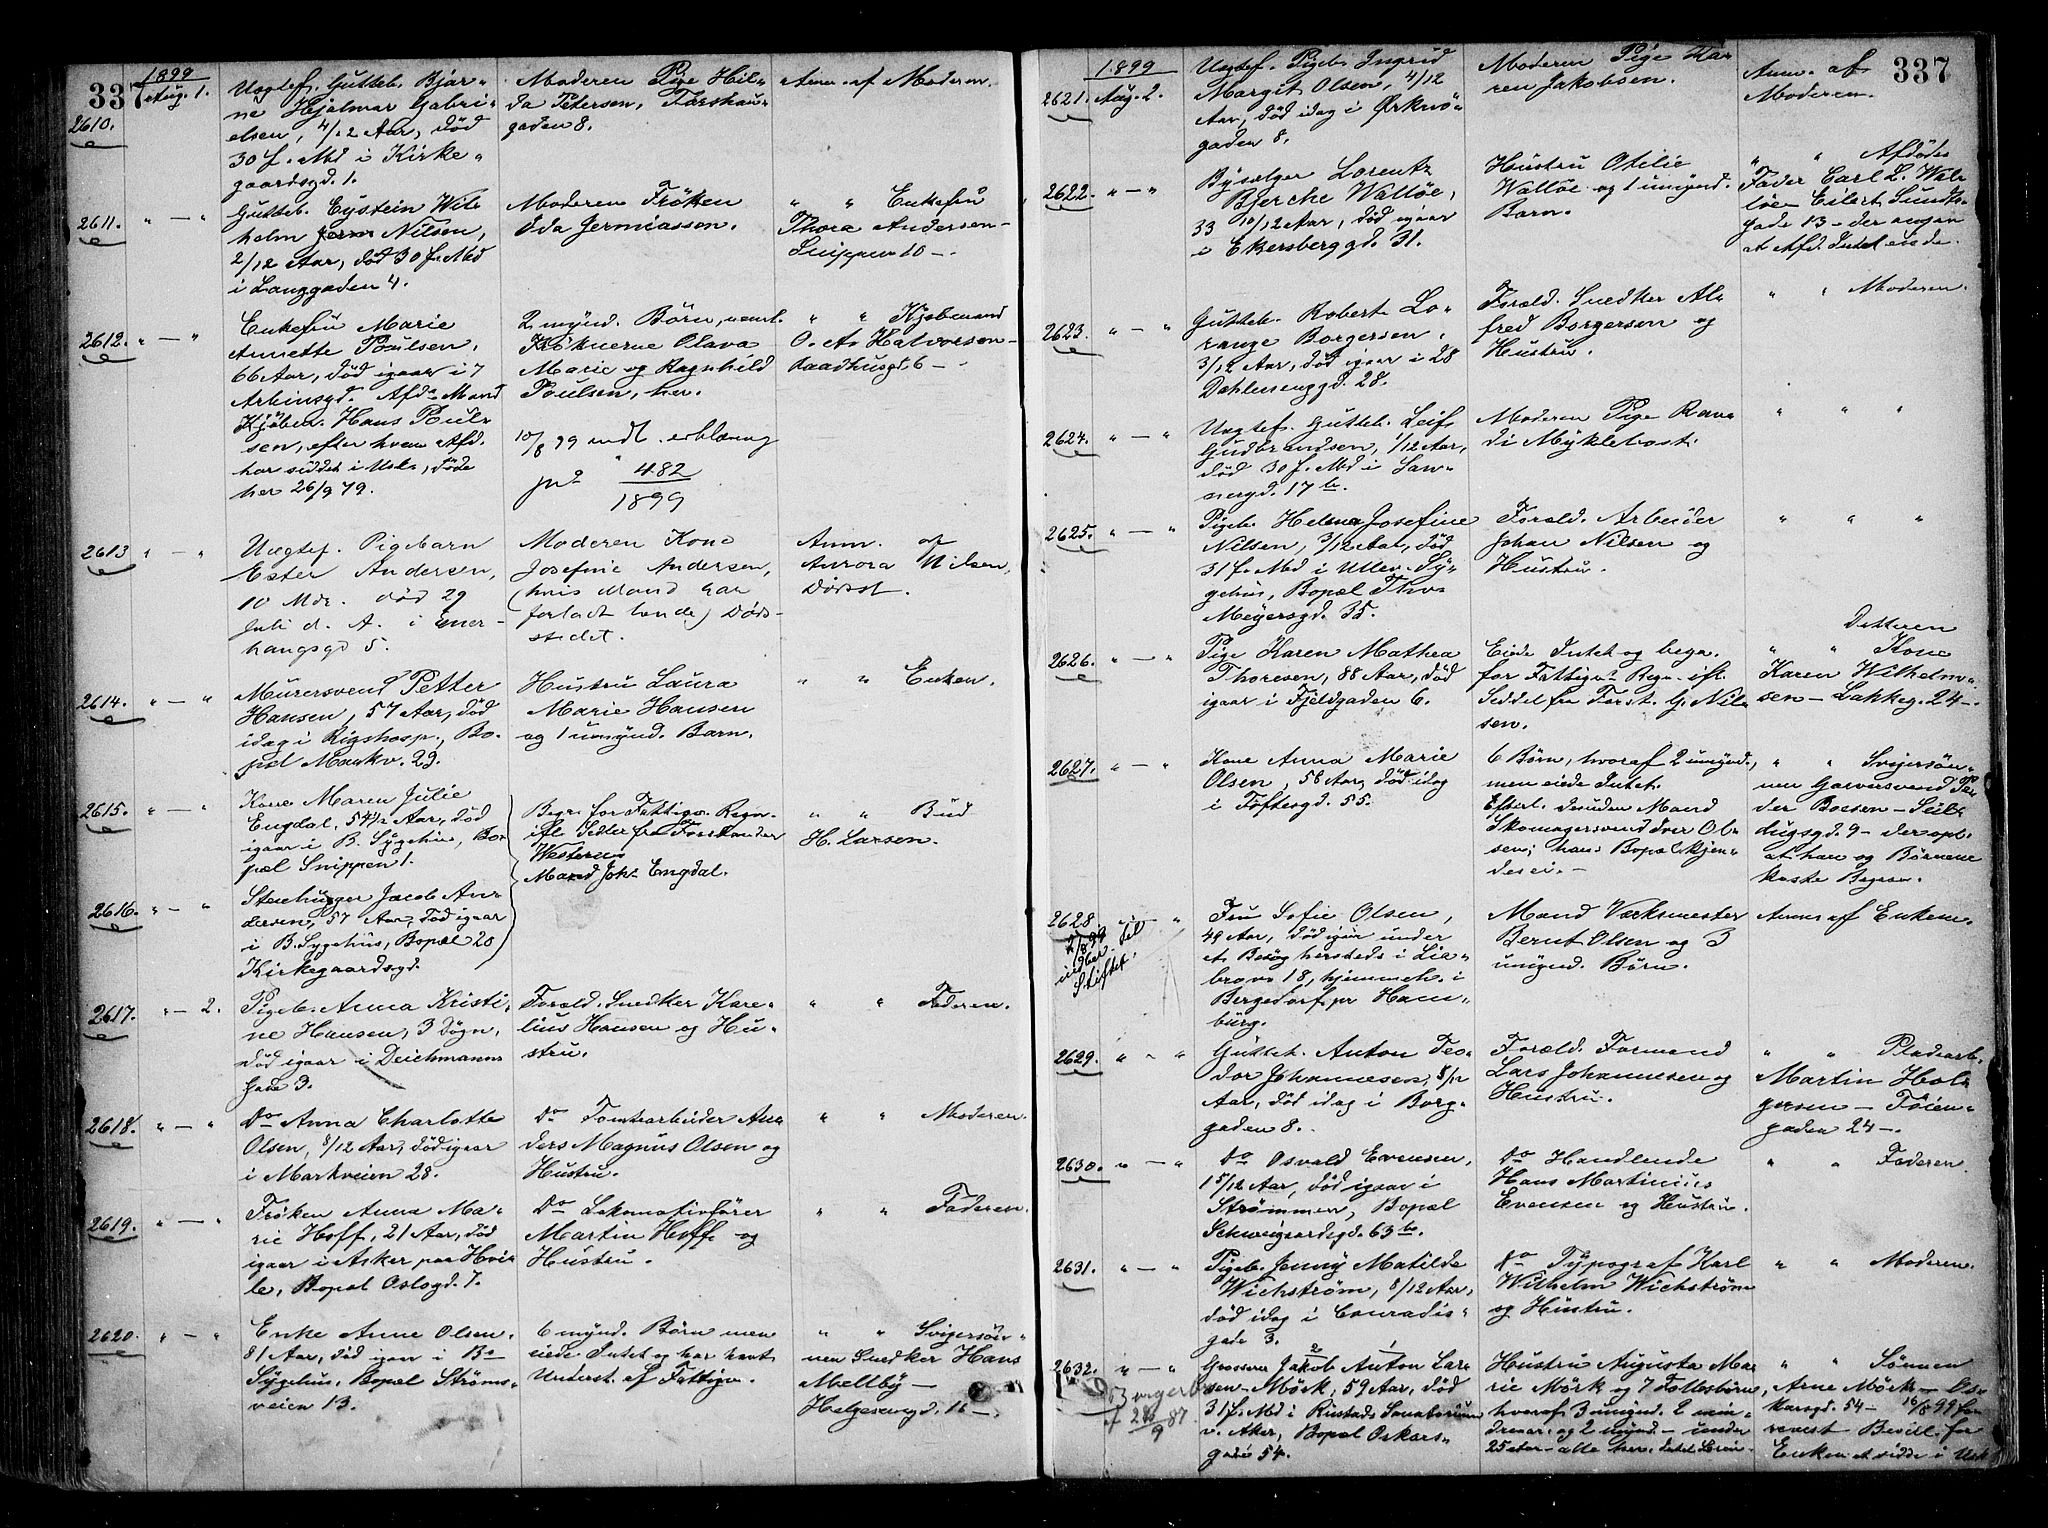 337
1899
2610.
Aug. 1.
Uægtef. Gutteb. Bjar-
ne Hjalmar Gabri-
elsen, 4/12 Aar, död
30 f. Md i Kirke-
gaardsgd. 1.
Moderen Pige Hil-
da Petersen, Torshau-
gaden 8.
Anm. af Moderen.
2611.
" — "
Gutteb. Eystein Wil-
helm Nilsen,
2/12 Aar, död 30 f. Md
i Langgaden 4.
Moderen Fröken
Ida Jermiasson.
" " Enkefru
Thora Andersen -
Snippen 10 -.
2612.
" — "
Enkefru Marie
Annette Poulsen,
66 Aar, död igaar i 7
Arbinsgd. Afdö Mand
Kjöbm. Hans Poul-
sen, efter hvem Afd.
har siddet i Usk., döde
her 26/9 79.
2 mynd. Börn, neml.
Fröknerne Olava
Marie og Ragnhild
Poulsen, her.
10/8 99 indl. erklæring
jno 482
1899
" " Kjöbmand
O. A. Halvorsen -
Raadhusgd. 6 -.
2613
" — "
Uægtef. Pigebarn
Ester Andersen,
10 Mdr. död 29
Juli d. A. i
hangsgd 5.
Moderen Kone
Josefine Andersen,
(hvis Mand har
forladt hende) Döds-
stedet.
Anm. af
Aurora Nilsen,
Dödsst.
2614.
" — "
Murersvend Petter
Hansen, 57 Aar, död
idag i Rigshosp., Bo-
pæl Markv. 29.
Hustru Laura
Marie Hansen
og 1 umynd. Barn.
" " Enken.
2615.
" — "
Kone Maren Julie
Engdal, 54½ Aar, död
igaar i B. Sygehus, Bo-
pæl Snippen 1.
Begr. for Fattigv. Regn.
ifl. Sedler fra Forstander
Westerens
Mand Joh. Engdal.
" " Bud
H. Larsen.
2616.
" — "
Stenhugger Jacob An-
dersen, 57 Aar, död igaar
i B. Sygehus, Bopæl 20
Kirkegaardsgd.
2617.
" — 2.
Pigeb. Anna Kristi-
ne Hansen, 3 Dögn,
död igaar i Deichmanns
gade 3.
Foræld. Snedker Kare-
lius Hansen og Hu-
stru.
" " Faderen.
2618.
" — "
Do Anna Charlotte
Olsen, 8/12 Aar, död igaar
i Markveien 28.
Do Tomtearbeider An-
ders Magnus Olsen og
Hustru.
" " Moderen.
2619.
" — "
Fröken Anna Ma-
rie Hoff, 21 Aar, död
igaar i Asker paa Hvi-
le, Bopæl Oslogd. 7.
Do Lokomotivförer
Martin Hoff og
Hustru.
" " Faderen.
2620.
" — "
Enke Anne Olsen.
81 Aar, död igaar i Bo
Sygehus, Bopæl Ströms-
veien 13.
6 mynd. Börn men
eiede Intet og har havt
Underst. af Fattigv.
" " Svigersön-
nen Snedker Hans
Mellby -
Helgesensgd. 16 -.
337
1899
2621.
Aug. 2.
Uægtef. Pigeb. Ingrid
Margit Olsen, 4/12
Aar, död idag i Örknö-
gaden 8.
Moderen Pige Ka-
ren Jakobsen.
Anm. af
Moderen.
2622.
" — "
Bysælger Lorentz
Bjerche Wallöe,
33 10/12 Aar, död igaar
i Ekersberggd. 31.
Hustru Otilie
Wallöe og 1 umynd.
Barn.
" " Afdödes
Fader Carl L. Wal-
löe - Eilert Sundts-
gade 13 - der angav
at Afd. Intet eiede.
2623.
" — "
Gutteb. Robert Lo-
range Borgersen,
3/12 Aar, död igaar i 28
Dahlenenggd. 28.
Foræld. Snedker Al-
fred Borgersen og
Hustru.
" " Moderen.
2624.
" — "
Uægtef. Gutteb. Leif
Gudbrandsen, 1/12 Aar,
död 30 f. Md i San-
nergd. 17 b.
Moderen Pige Ran-
di Myklebost.
" " "
2625.
" — "
Pigeb. Helena Josefine
Nilsen, 3/12 Aar, död
31 f. Md i Ullev. Sy-
gehus, Bopæl Thv.
Meyersgd. 35.
Foræld. Arbeider
Johan Nilsen og
Hustru.
" " "
2626.
" — "
Pige Karen Mathea
Thoresen, 88 Aar, död
igaar i Fjeldgaden 6.
Eiede Intet og begr.
for Fattigv. Regn. ifl.
Seddel fra Forst. G. Nil-
sen.
Datteren
" " Kone
Karen Wilhelm-
sen - Lakkeg. 24 -.
2627.
" — "
Kone Anna Marie
Olsen, 58 Aar, död idag
i Toftesgd. 55.
6 Börn, hvoraf 2 umynd.,
men eiede Intet.
Efterl. desuden Mand
Skomagersvend Iver Ol-
sen; hans Bopæl kjen-
des ei. -
" " Svigersön-
nen Garversvend Pe-
der Boesen - Seil-
dugsgd. 9 - der opl.
at han og Börnene
koste Begrav.
2628
" — "
2/8 99
indber. til
Stiftet.
Fru Sofie Olsen,
49 Aar, död igaar under
et Besög hersteds i Lia-
brovn 18, hjemmeh. i
Bergedorf pr Ham-
burg.
Mand Værksmester
Bernt Olsen og 3
umynd. Börn.
Anm. af Enkem.
2629.
" — "
Gutteb. Anton Teo-
dor Johannesen, 8/12
Aar, död idag i Borg-
gaden 8.
Foræld. Formand
Lars Johannesen og
Hustru.
" " Pladsarb.
Martin Hol-
gersen - Töien-
gaden 24 -.
2630.
" — "
Do Osvald Evensen,
1 5/12 Aar, död igaar i
Strømmen, Bopæl
Schweigaardsgd. 63 b.
Do Handlende
Hans Martinius
Evensen og Hustru.
" " Faderen.
2631.
" — "
Pigeb. Jenny Matilde
Wichström, 8/12 Aar,
död idag i Conradis-
gade 3.
Do Typograf Karl
Wilhelm Wichström
og Hustru.
" " Moderen.
2632.
" — "
2 1
Grosserer Jakob Anton Lar-
sen-Mörk, 59 Aar, död
31 f. Md i Rustads Sanatorium
v. Aker, Bopæl Oskars-
gade 54.
Hustru Augusta Ma-
rie Mörk og 7 Fællesbörn
hvoraf 3 umynd. 2 min-
dreaar. og 2 mynd. - under
25 Aar - alle her.
" " Sönnen
Arne Mörk - Os-
karsgd. 54 - 16/8 99 fore-
vevist Bevill. for
Enken at sidde i Usk